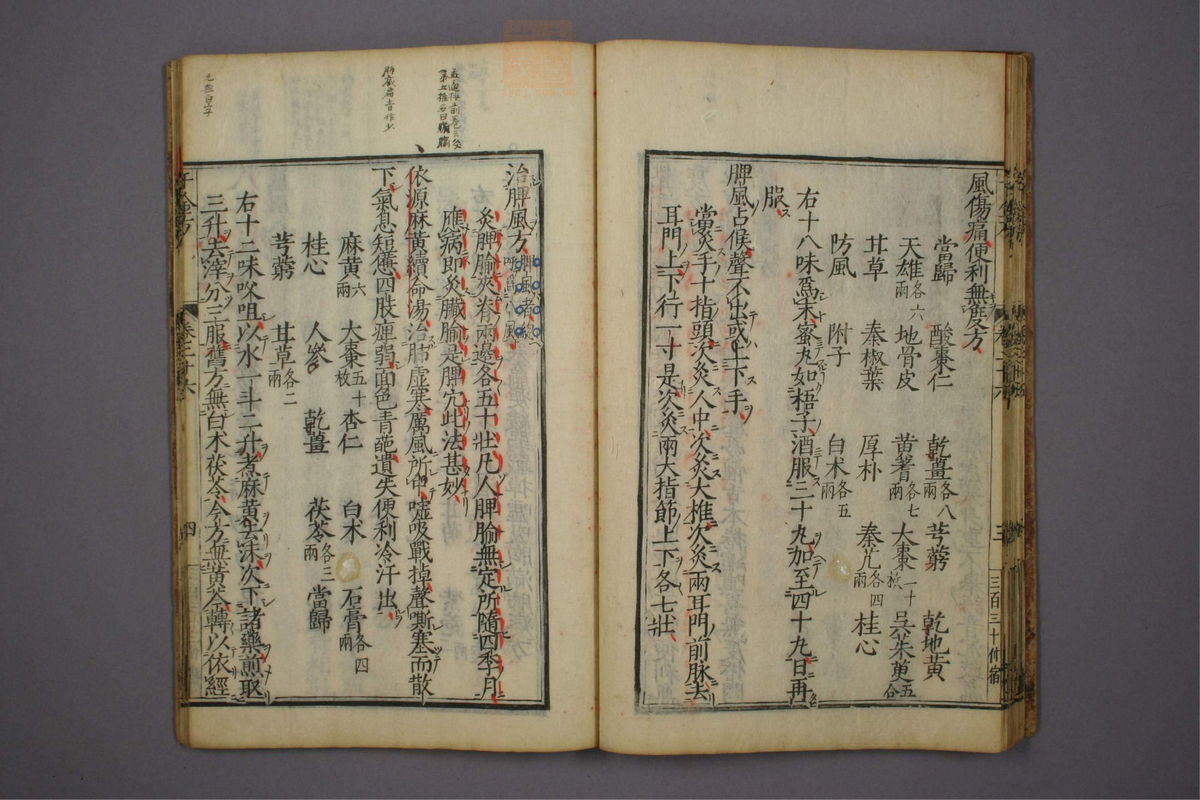 風傷痛便利無度方
當歸 酸棗仁 乾薑各八兩 芎藭 乾地黃
天雄各六兩 地骨皮 黃耆各七兩 大棗二十枚 吳茱萸五合
甘草 秦椒葉 厚朴 秦艽各四兩 桂心
防風 附子 白朮各五兩
右十八味爲末蜜丸如梧子酒服三十丸加至四十九日再
服
脾風占候聲不出或上下手
當灸手十指頭次灸人中次灸大椎次灸兩耳門前脉去
耳門上下行一寸是次灸兩大指節上下各七壯
治脾風方
灸脾腧夾脊兩邊各五十壯凡人脾腧無定所隨四季月
應病即灸臟腧是脾穴此法甚妙
依源麻黃續命湯治肺虛寒厲風所中噓吸戰掉聲嘶塞而散
下氣息短憊四肢痺弱面色青葩遺失便利冷汗出
麻黃六兩 大棗五十枚 杏仁 白朮 石膏各四兩
桂心 人參 乾薑 茯苓各三兩 當歸
芎藭 甘草各二兩
右十二味㕮咀以水一斗二升煮麻黃去沫次下諸藥煎取
三升去滓分三服舊方無白朮茯苓今方無黃芩轉以依經
卷二十六
四